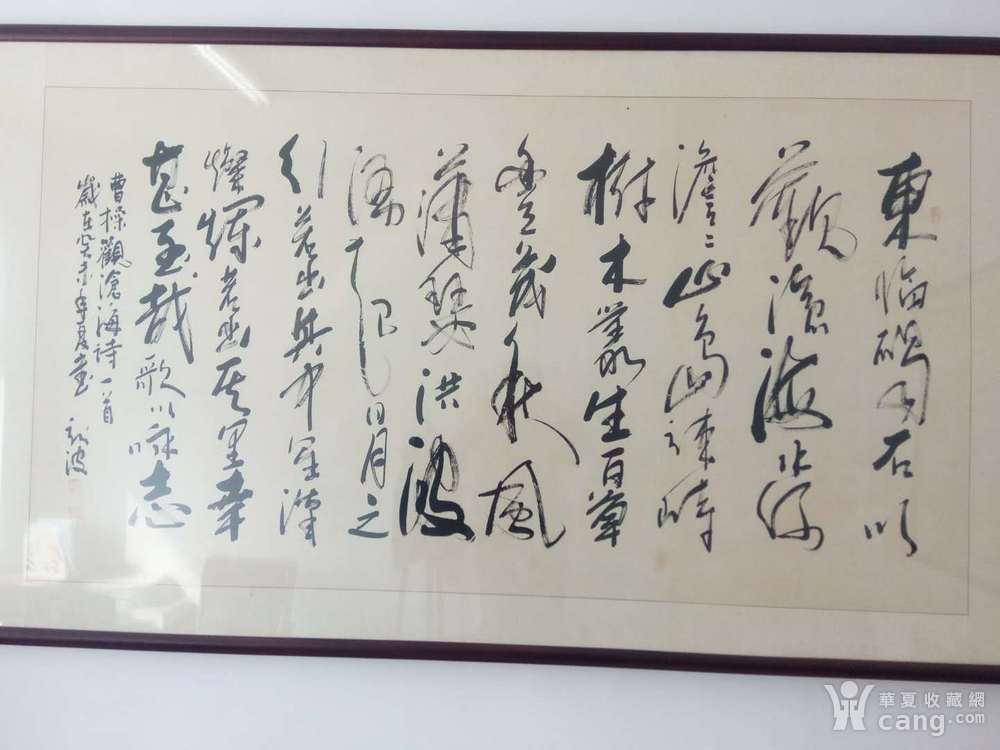 東臨碣石以
觀滄海水何
澹々山島竦峙
樹木叢生百草
豐茂秋風
蕭瑟洪波
湧起日月之
行若出其中星漢
燦爛若出其里幸
甚至哉歌以咏志
曹操觀滄海詩一首
歲在癸未年夏書 波
華夏收藏網
cang.com